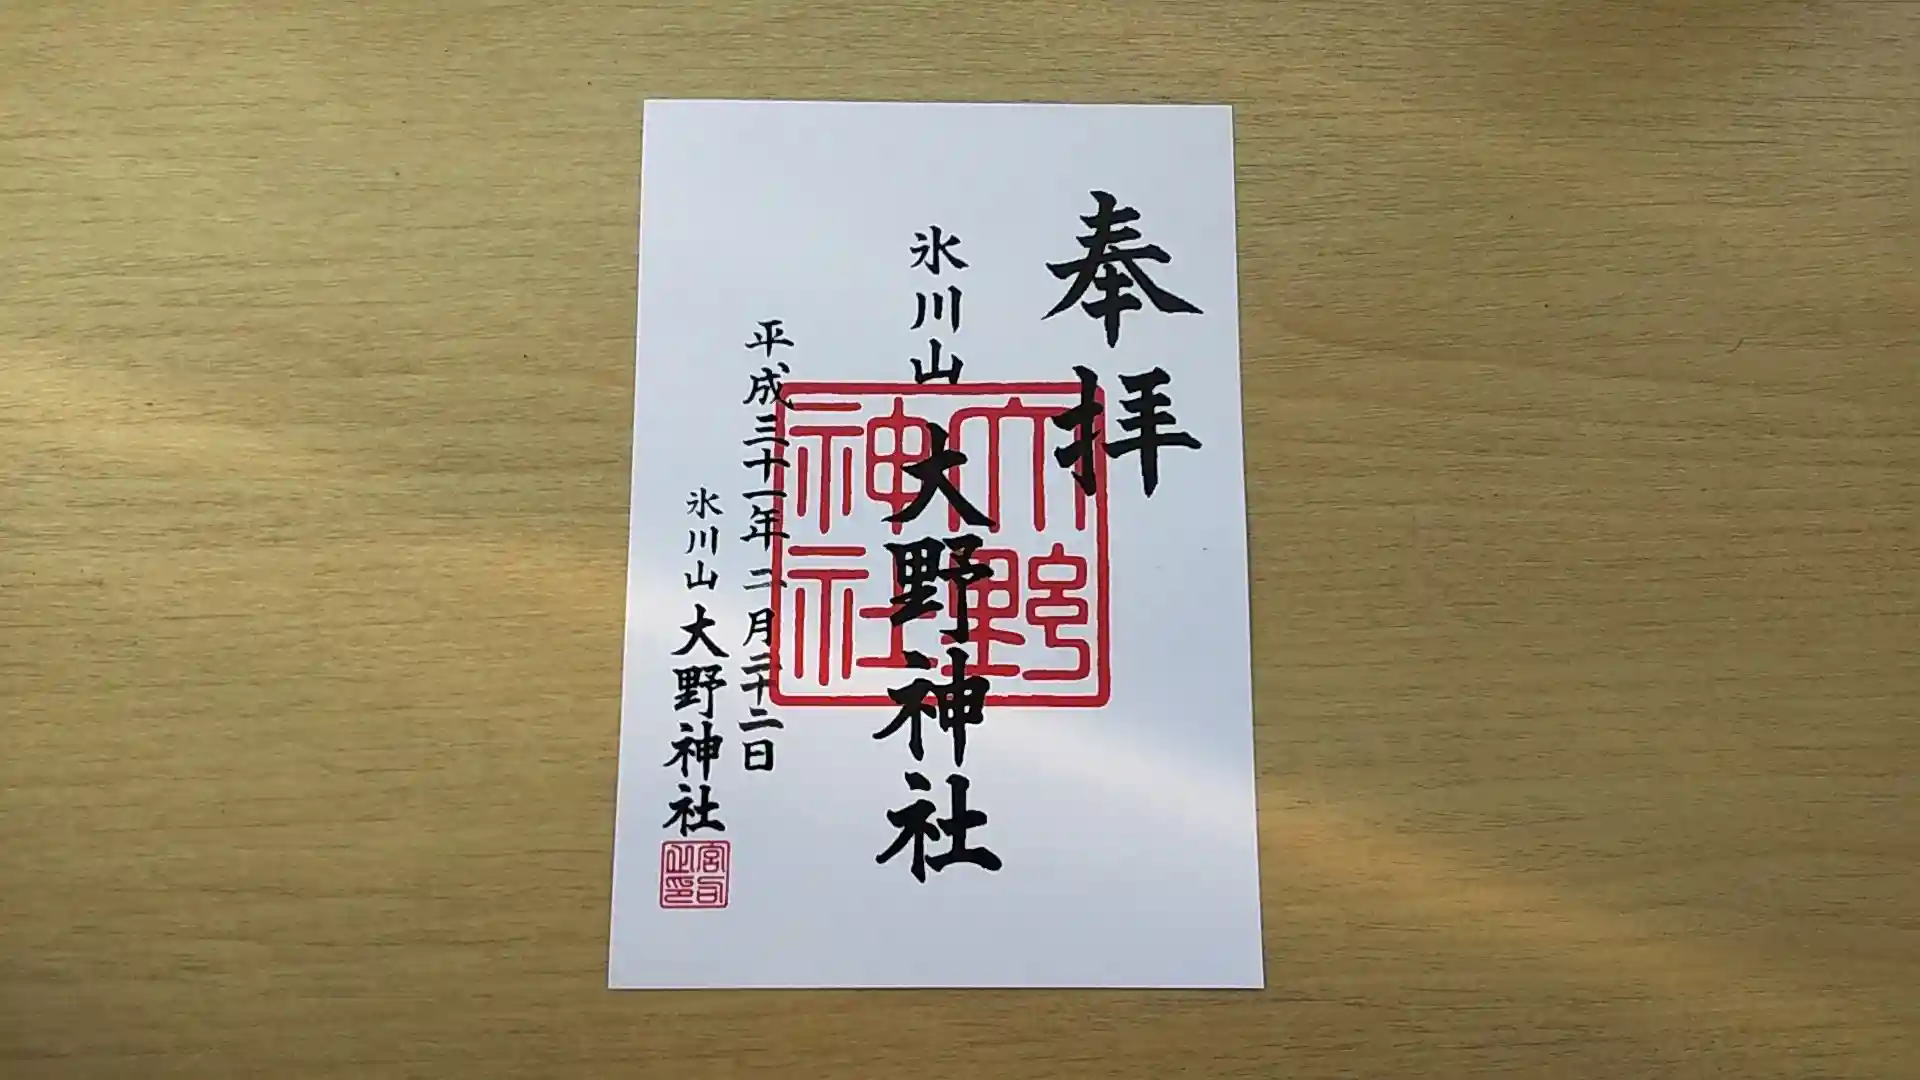 奉拝
氷川山 大野神社
大野神社
平成三十一年二月二十二日
氷川山 大野神社
宮司之印